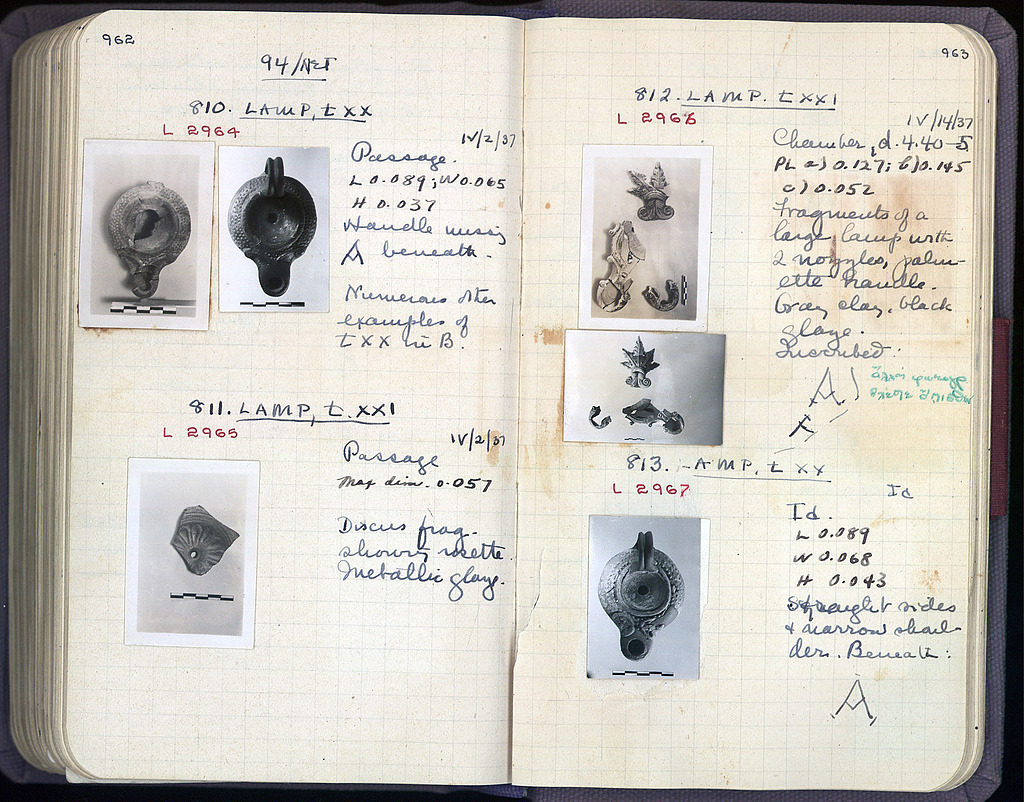 962
94/NET
810. LAMP, t XX
L 2964
IV/2/37
Passage.
L 0.089; W 0.065
H 0.037
Handle missing
A beneath.
Numerous other
examples of
t XX in B.
811. LAMP, t. XXI
L 2965
IV/2/37
Passage
Max dim. 0.057
Discus frag.
showing rosette.
Metallic glaze.
963
812. LAMP. t XXI
L 2966
IV/14/37
Chamber, d. 4.40-5
PL a) 0.127; b) 0.145
c) 0.052
Fragments of a
large lamp with
2 nozzles, palm-
ette handle.
Gray clay, black
glaze.
Inscribed:
A
813. LAMP, t XX
L 2967
Id
Id.
L 0.089
W 0.068
H 0.043
Straight sides
+ narrow shoul-
der. Beneath:
A